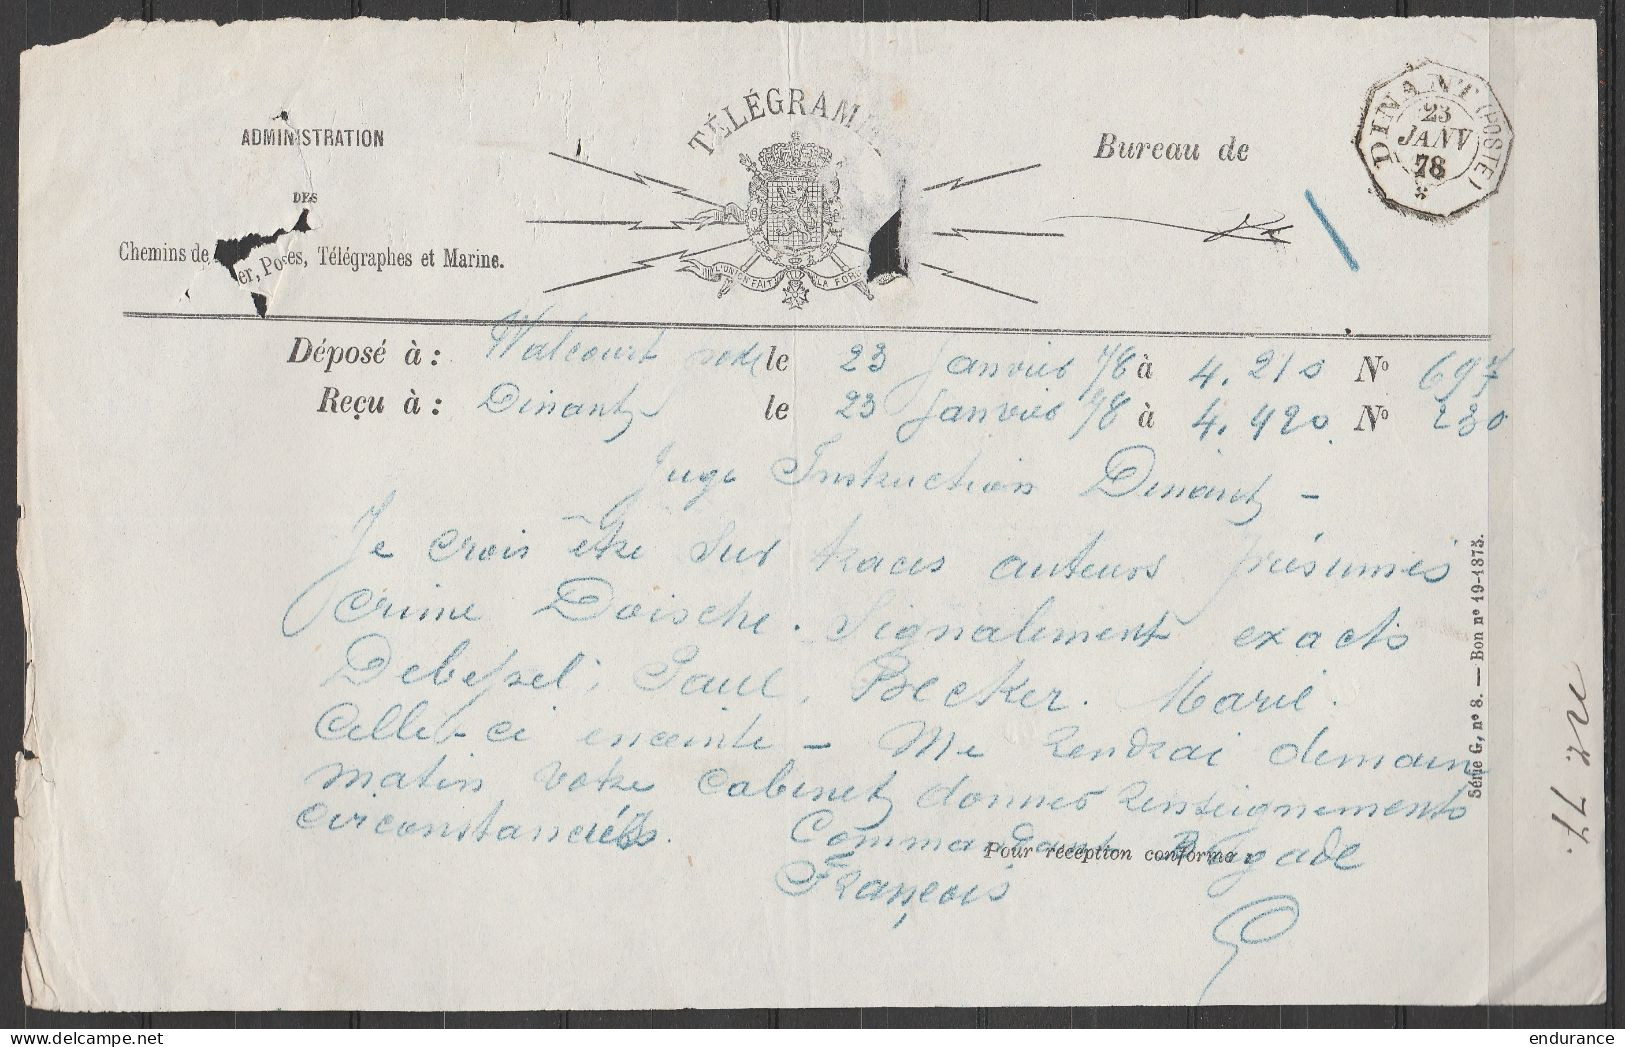 ADMINISTRATION
DES
Chemins de er, Postes, Télégraphes et Marine.
TÉLÉGRAMM
L'UNION FAIT LA FOR
Bureau de
DINANT (POSTE)
23
JANV
78
Déposé à : Walcourt le 23 Janvier 78 à 4.21 s No 697
Reçu à : Dinant le 23 Janvier 78 à 4.420 No 230
Juge Instruction Dinant -
Je crois être sur traces auteurs présumés
crime Doische. Signalement exacts
Paul, Becker. Marie.
Celle-ci enceinte - Me rendrai demain
matin votre cabinet donner renseignements
circonstanciés. Commandant Brigade
Pour réception conforme,
François
Série G, no 8. — Bon no 19-1875.
endurance